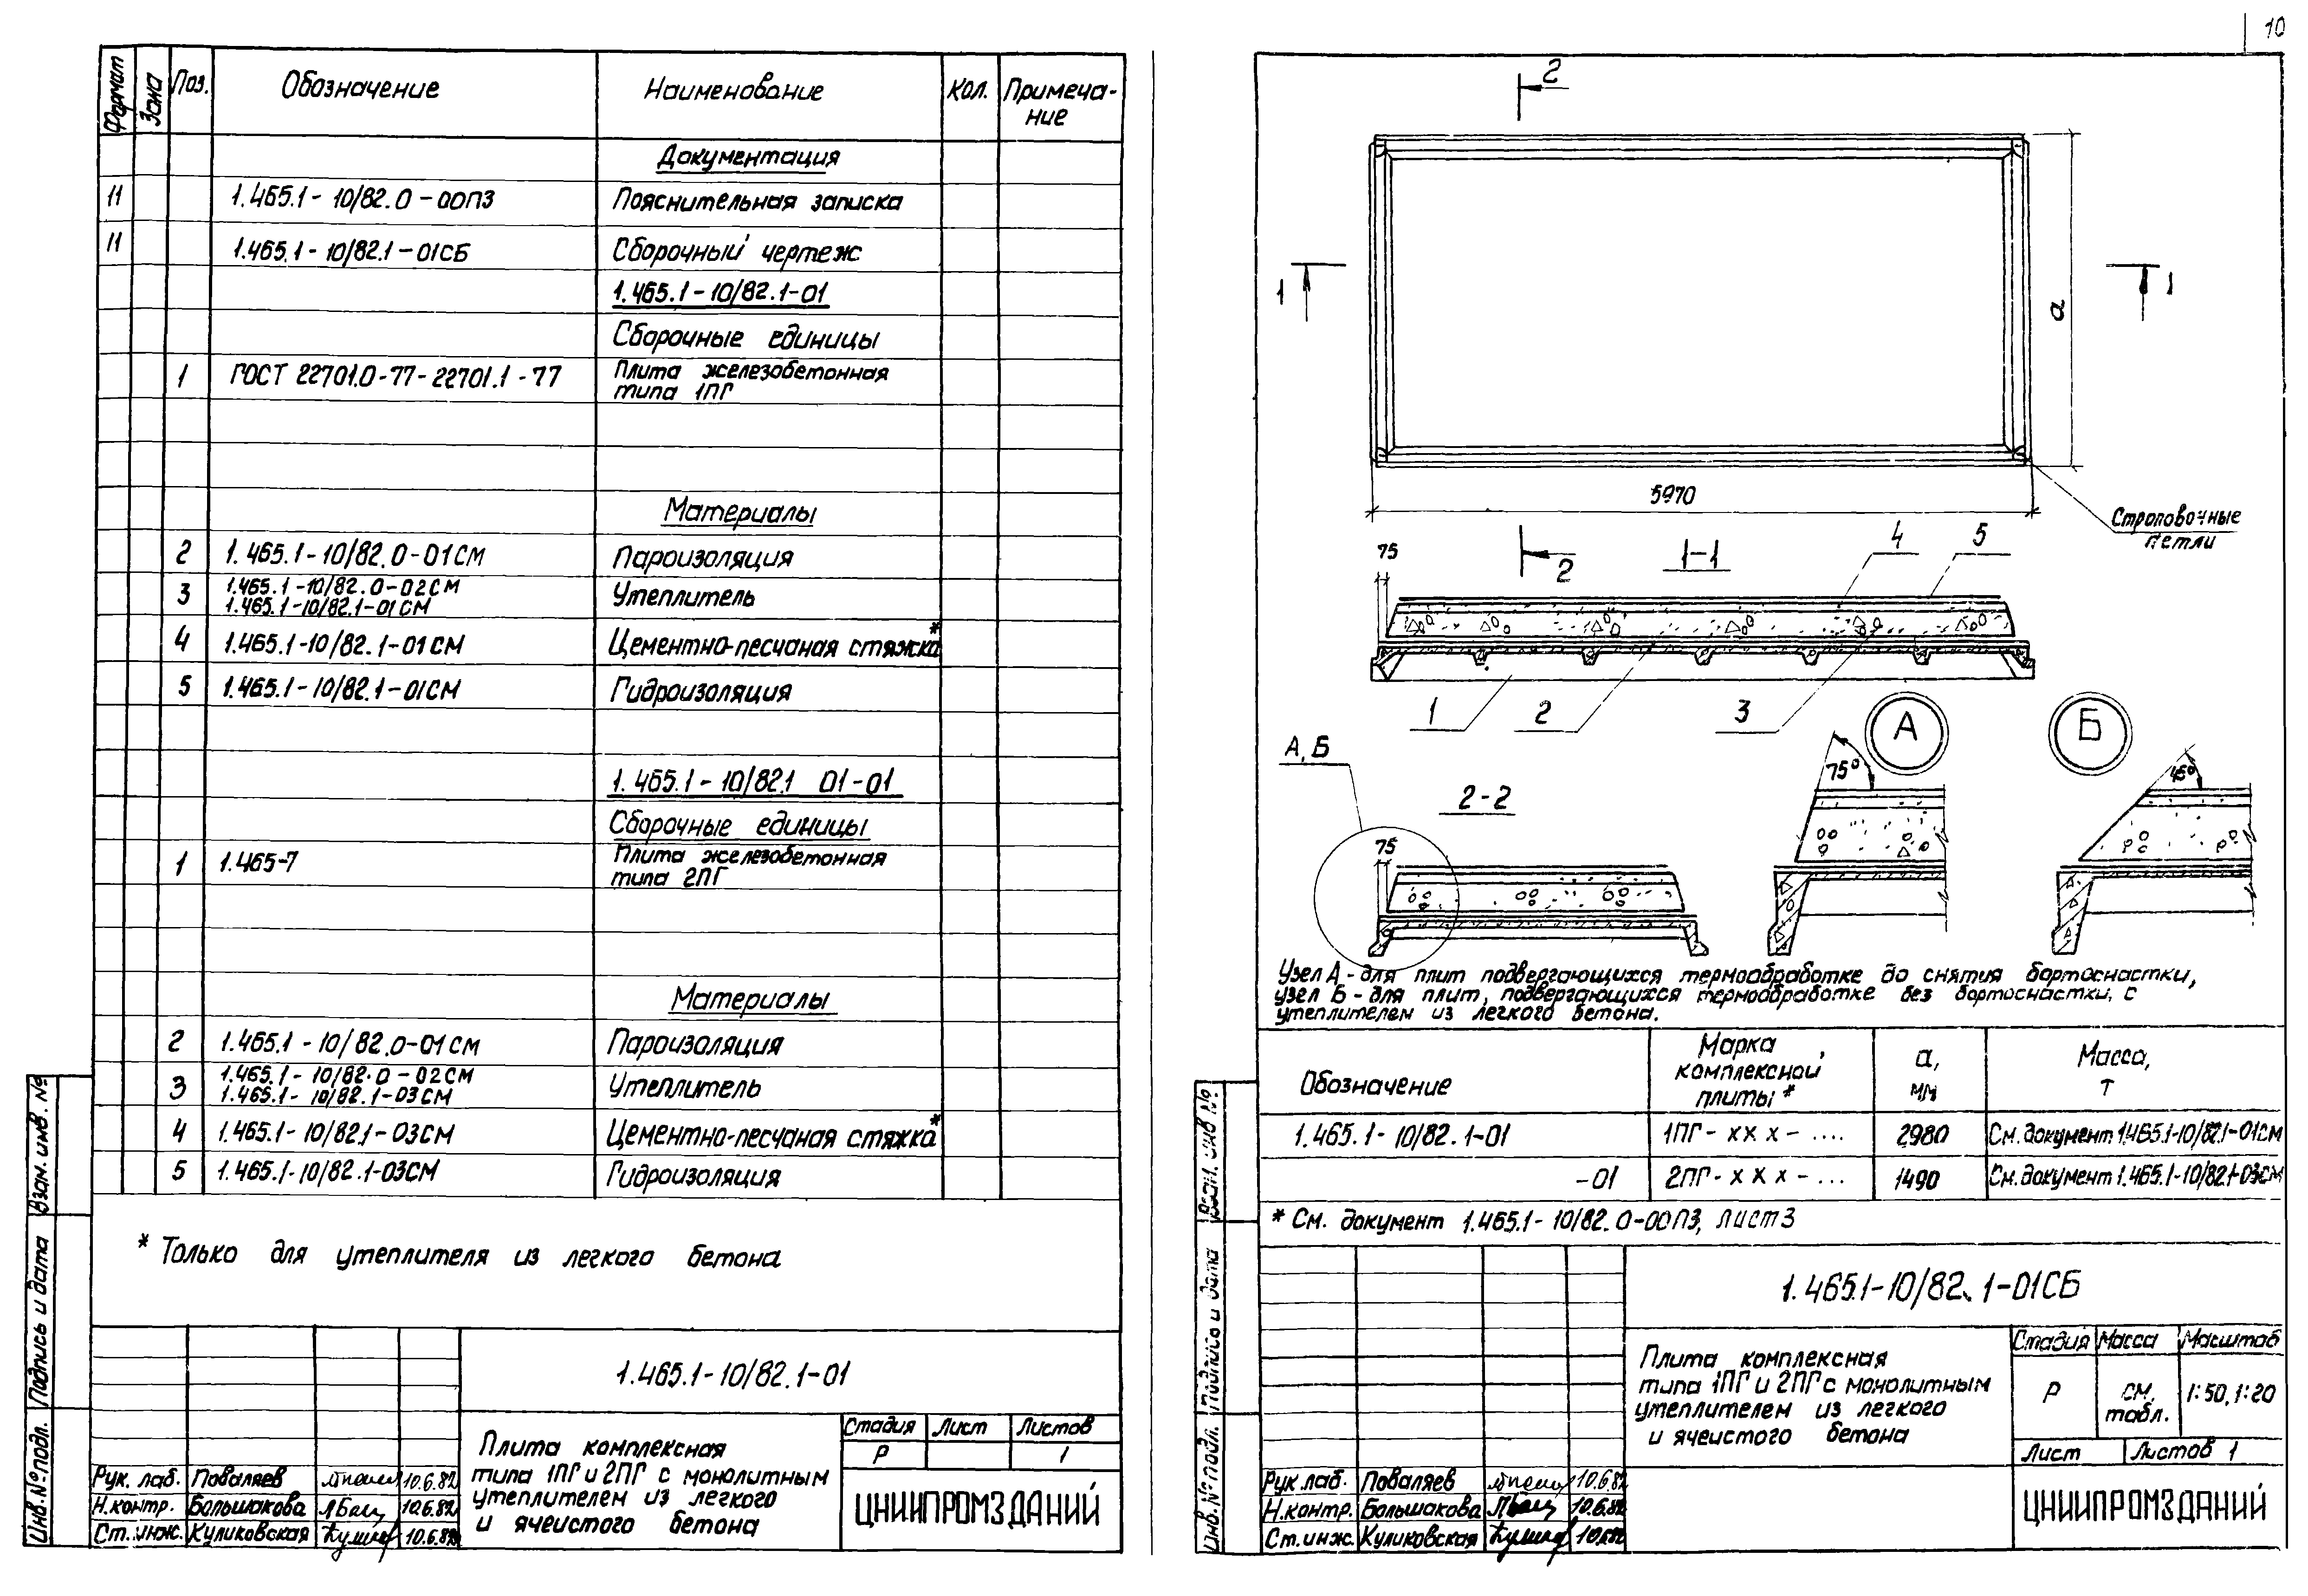 10
Формат Зона Поз. Обозначение Наименование Кол. Примеча-
ние
Документация
11 1.465.1-10/82.0-00ПЗ Пояснительная записка
11 1.465.1-10/82.1-01СБ Сборочный чертеж
1.465.1-10/82.1-01
Сборочные единицы
1 ГОСТ 22701.0-77-22701.1-77 Плита железобетонная
типа 1ПГ
Материалы
2 1.465.1-10/82.0-01СМ Пароизоляция
3 1.465.1-10/82.0-02СМ Утеплитель
1.465.1-10/82.1-01СМ
4 1.465.1-10/82.1-01СМ Цементно-песчаная стяжка*
5 1.465.1-10/82.1-01СМ Гидроизоляция
1.465.1-10/82.1 01-01
Сборочные единицы
1 1.465-7 Плита железобетонная
типа 2ПГ
Материалы
2 1.465.1-10/82.0-01СМ Пароизоляция
3 1.465.1-10/82.0-02СМ Утеплитель
1.465.1-10/82.1-03СМ
4 1.465.1-10/82.1-03СМ Цементно-песчаная стяжка*
5 1.465.1-10/82.1-03СМ Гидроизоляция
* Только для утеплителя из легкого бетона
Взам. инв. №
Подпись и дата
Инв.№ подл.
1.465.1-10/82.1-01
Плита комплексная
типа 1ПГ и 2ПГ с монолитным
утеплителем из легкого
и ячеистого бетона
Стадия Лист Листов
Р 1
ЦНИИПРОМЗДАНИЙ
Рук. лаб. Поваляев 10.6.82
Н.контр. Большакова 10.6.82
Ст.инж. Куликовская 10.6.82
2
1 1
а
5970
Строповочные
петли
75 2 1-1 4 5
1 2 3
А Б
А, Б
75° 45°
2-2
75
Узел А - для плит подвергающихся термообработке до снятия бортоснастки,
узел Б - для плит, подвергающихся термообработке без бортоснастки, с
утеплителем из легкого бетона.
Обозначение Марка комплексной плиты* а, мм Масса, т
1.465.1-10/82.1-01 1ПГ-ххх-.... 2980 См.документ 1.465.1-10/82.1-01СМ
-01 2ПГ-ххх-... 1490 См.документ 1.465.1-10/82.1-03СМ
* См. документ 1.465.1-10/82.0-00ПЗ, лист 3
Взам. инв №
Подпись и дата
Инв.№ подл.
1.465.1-10/82.1-01СБ
Плита комплексная
типа 1ПГ и 2ПГ с монолитным
утеплителем из легкого
и ячеистого бетона
Стадия Масса Масштаб
Р см. табл. 1:50, 1:20
Лист Листов 1
ЦНИИПРОМЗДАНИЙ
Рук.лаб. Поваляев 10.6.82
Н.контр. Большакова 10.6.82
Ст.инж. Куликовская 10.6.82